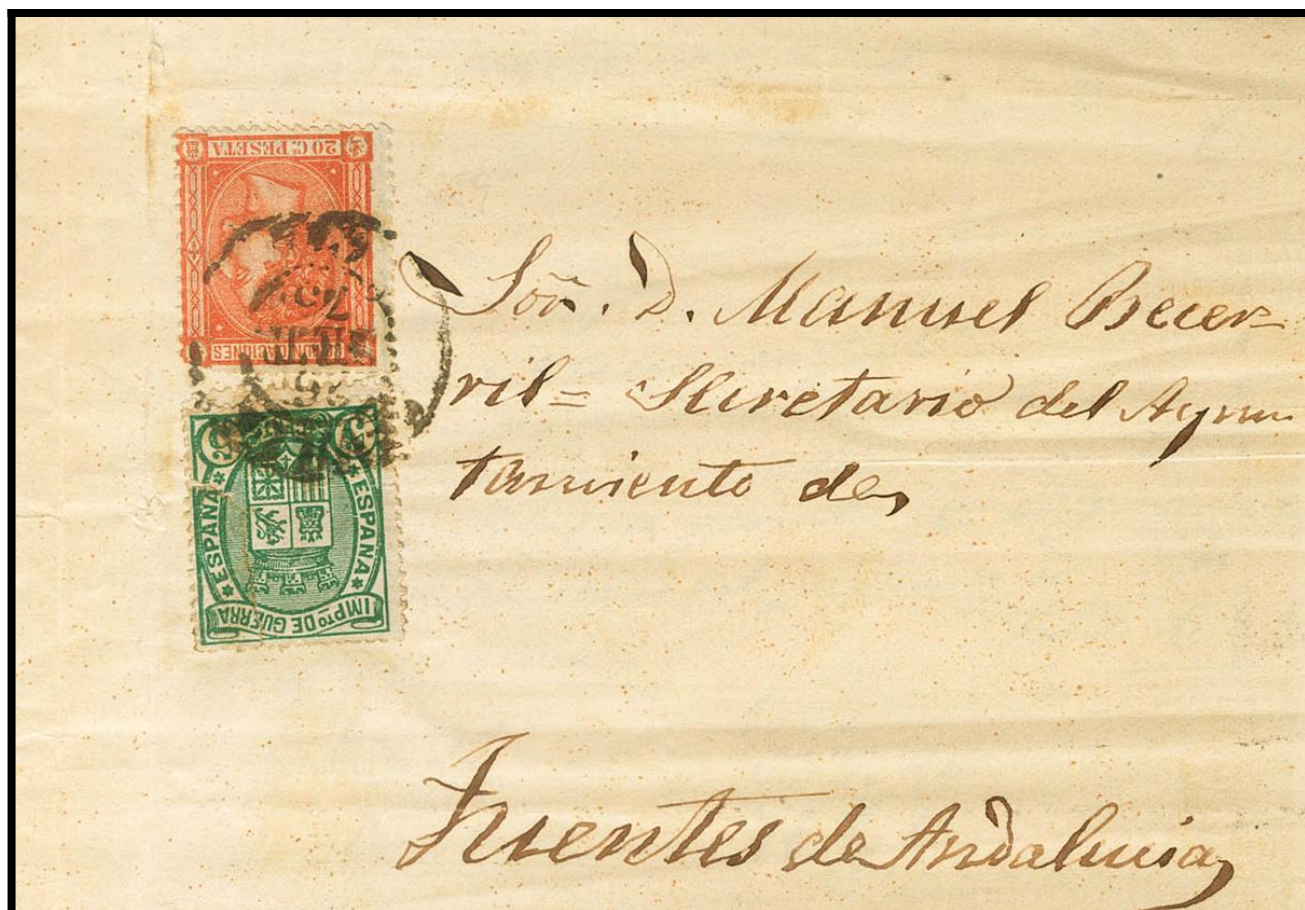 20 Cs PESETA
COMUNICACIONES
75
5 5
ESPAÑA ESPAÑA
IMPto DE GUERRA
Sor. D. Manuel Becer=
ril= Secretario del Ayun
tamiento de
Fuentes de Andalucia